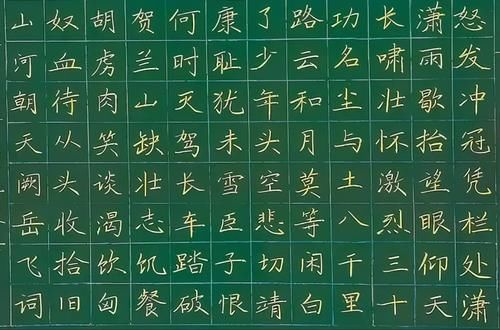 怒发冲冠凭栏处潇
潇雨歇抬望眼仰天
长啸壮怀激烈三十
功名尘与土八千里
路云和月莫等闲白
了少年头空悲切靖
康耻犹未雪臣子恨
何时灭驾长车踏破
贺兰山缺壮志饥餐
胡虏肉笑谈渴饮匈
奴血待从头收拾旧
山河朝天阙岳飞词